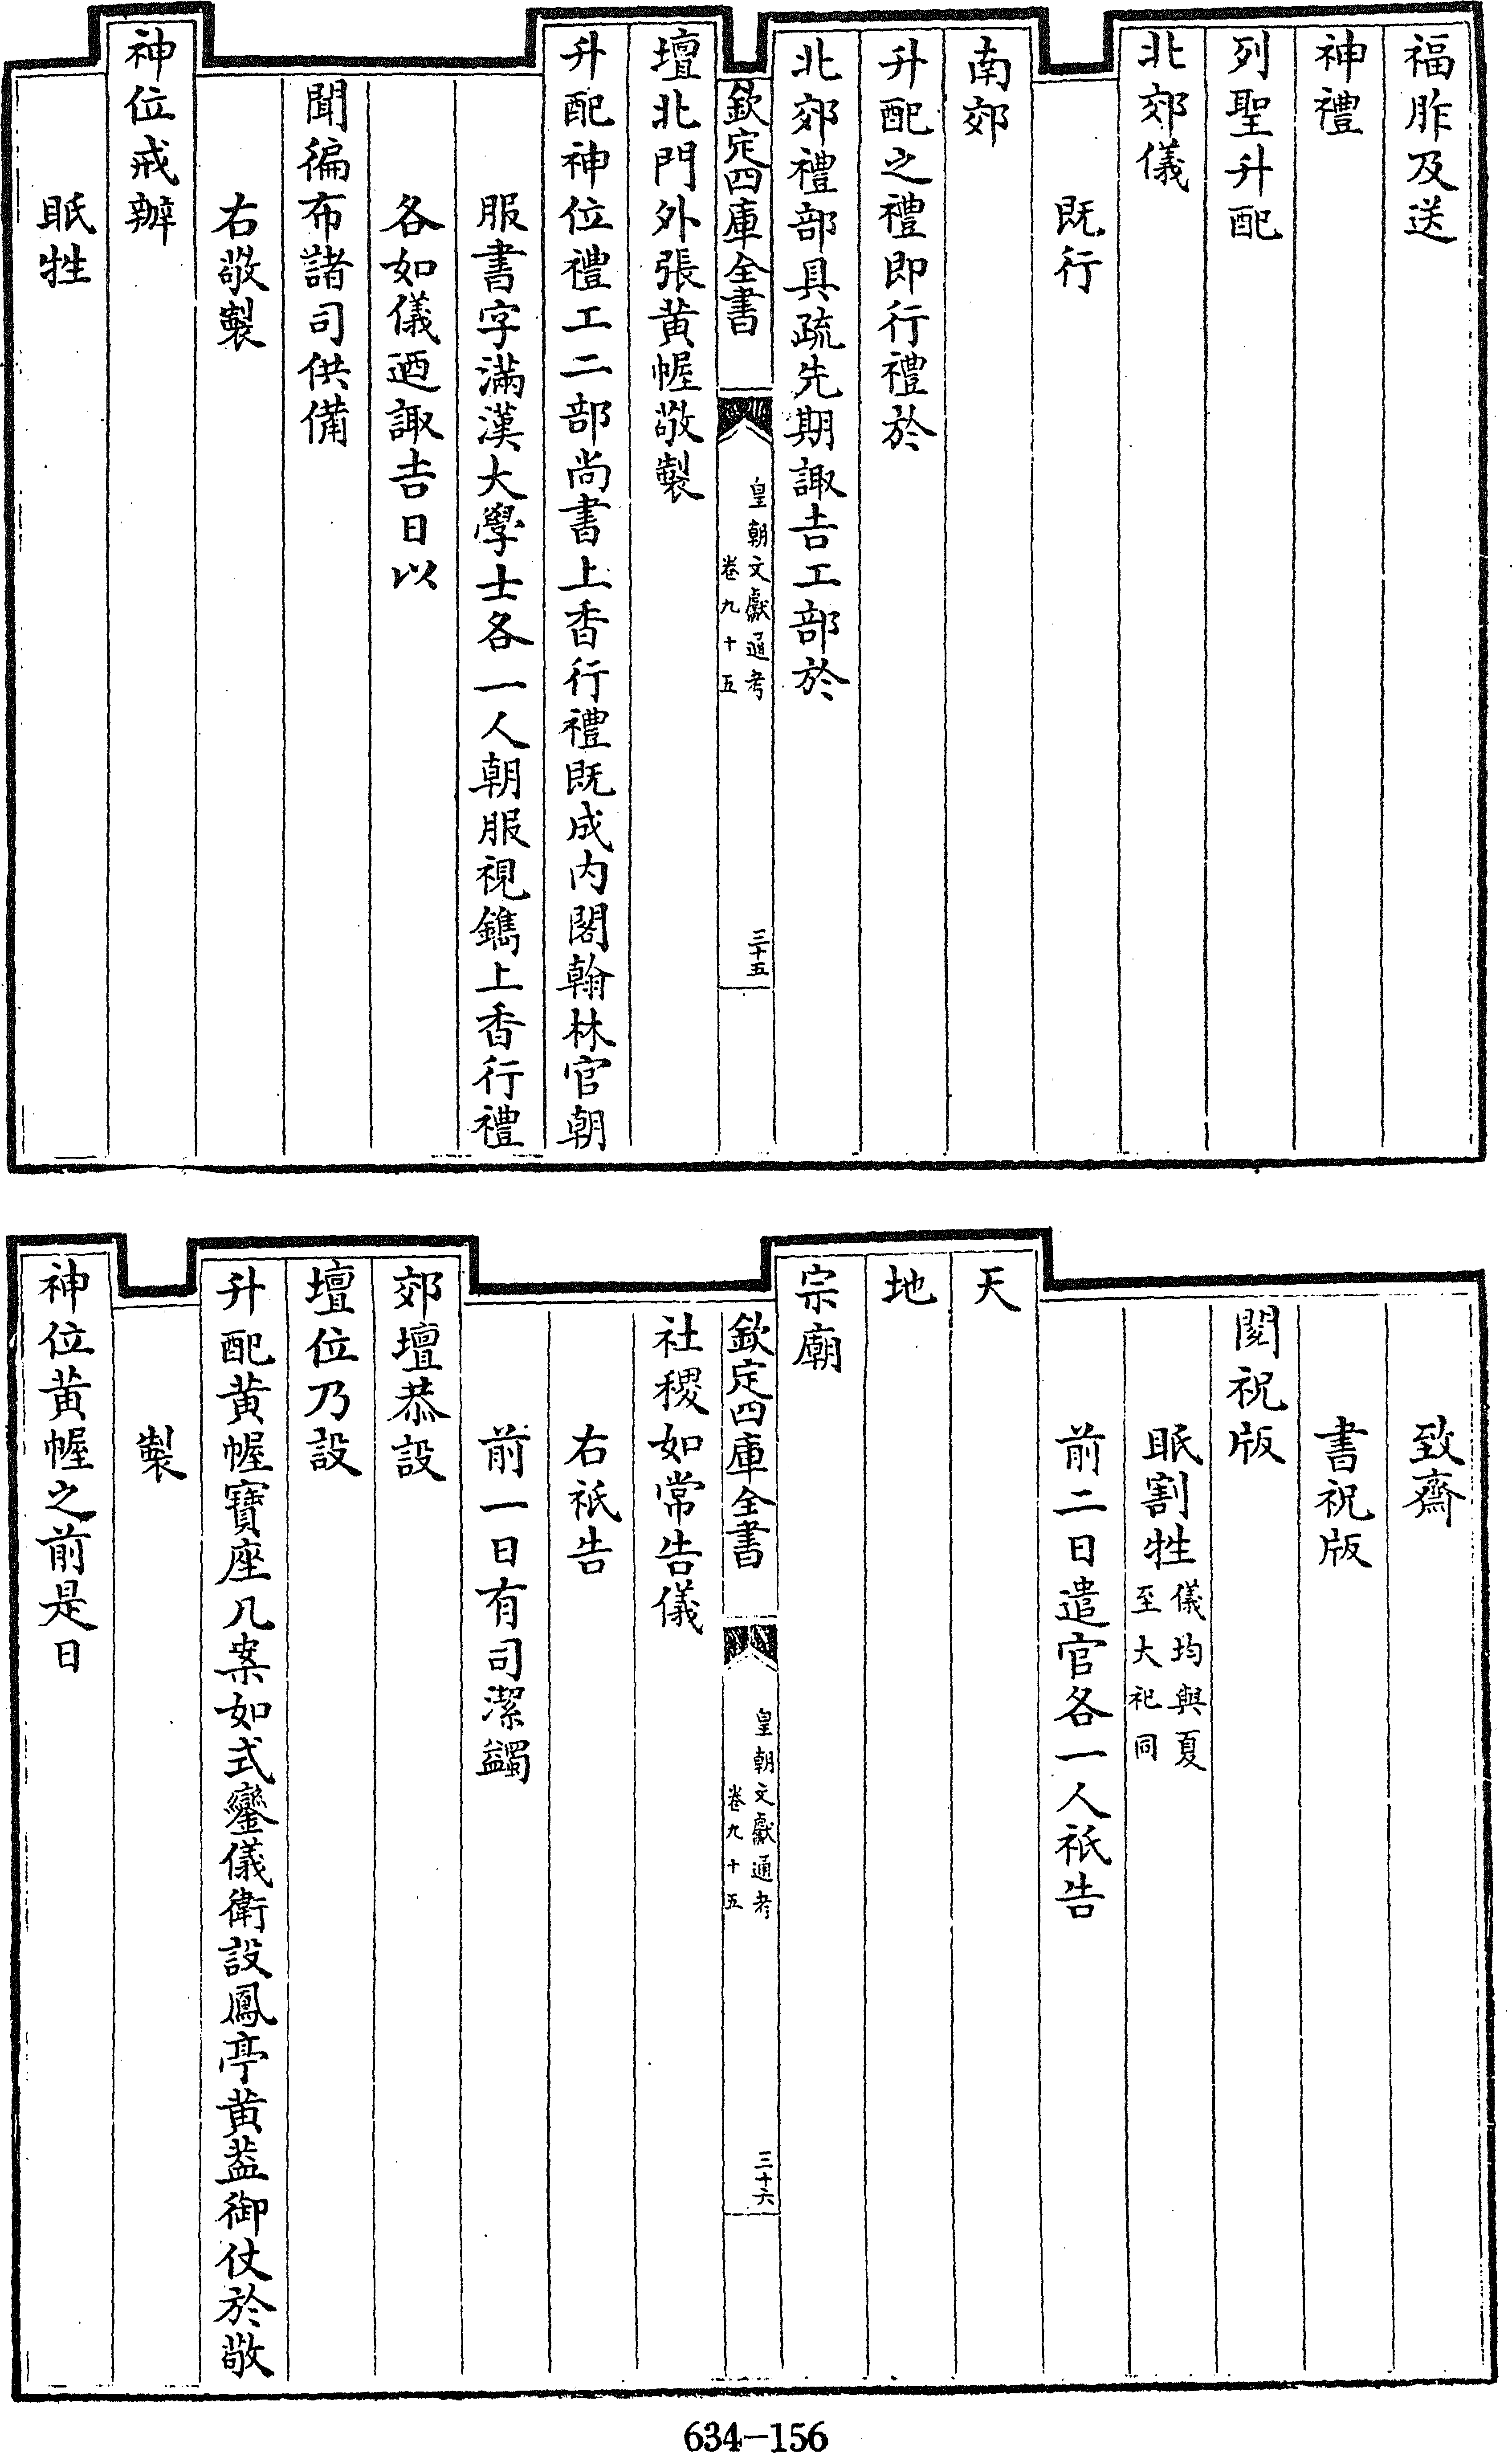 福胙及送
神禮
列聖升配
北郊儀
既行
南郊
升配之禮即行禮於
北郊禮部具疏先期諏吉工部於
欽定四庫全書
皇朝文獻通考
卷九十五
三十五
壇北門外張黃幄敬製
升配神位禮工二部尚書上香行禮既成內閣翰林官朝
服書字滿漢大學士各一人朝服視鐫上香行禮
各如儀迺諏吉日以
聞徧布諸司供備
右敬製
神位戒辦
眂牲
致齋
書祝版
閱祝版
眂割牲儀均與夏至大祀同
前二日遣官各一人祇告
天
地
宗廟
欽定四庫全書
皇朝文獻通考
卷九十五
三十六
社稷如常告儀
右祇告
前一日有司潔蠲
郊壇恭設
壇位乃設
升配黃幄寶座几案如式鑾儀衛設鳳亭黃蓋御仗於敬
製
神位黃幄之前是日
634-156